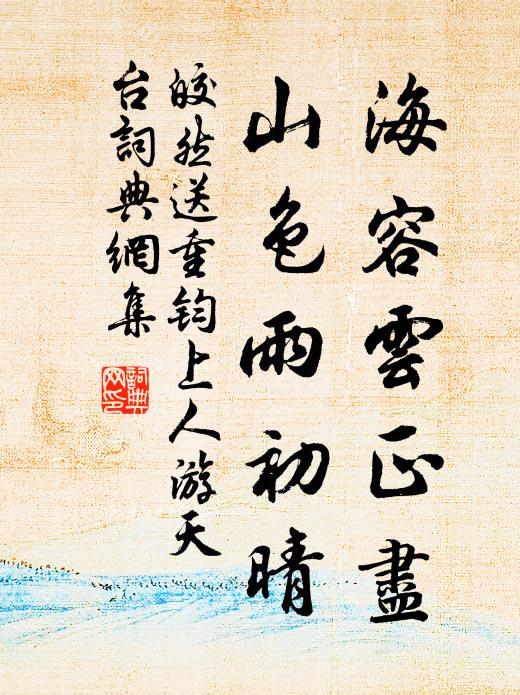 海容雲正盡
山色雨初晴
皎然送重钧上人游天
台詞典網集
詞典
网印